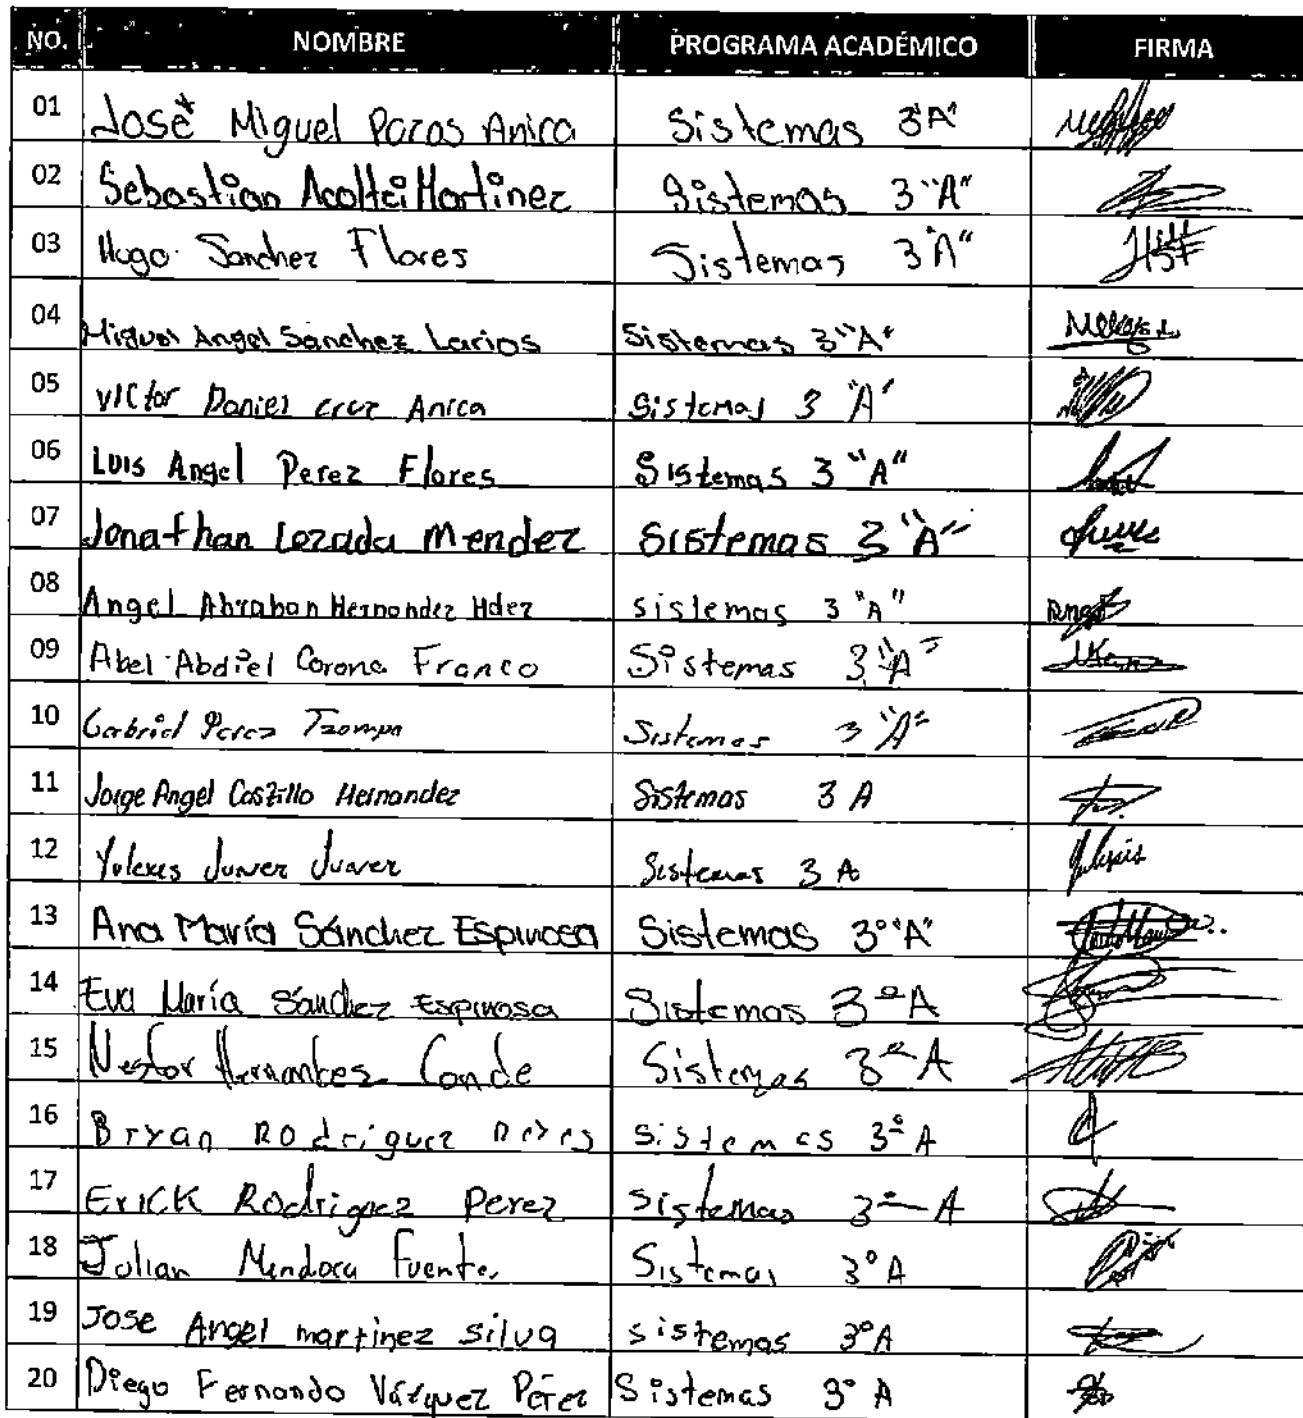 NO. NOMBRE PROGRAMA ACADÉMICO FIRMA
01 José Miguel Pozos Anica Sistemas 3"A"
02 Sebastian Acoltzi Martinez Sistemas 3 "A"
03 Hugo Sanchez Flores Sistemas 3 "A"
04 Miguel Angel Sanchez Larios Sistemas 3 "A"
05 VICtor Daniel cruz Anica Sistemas 3 "A"
06 LUIS Angel Perez Flores Sistemas 3 "A"
07 Jonathan Lozada Mendez Sistemas 3 "A"
08 Angel Abrahan Hernandez Hdez sistemas 3 "A"
09 Abel Abdiel Corona Franco Sistemas 3 "A"
10 Gabriel Perez Tzompa Sistemas 3 "A"
11 Jorge Angel Castillo Hernandez Sistemas 3 A
12 Yulexis Juarez Juarez Sistemas 3 A
13 Ana María Sánchez Espinosa Sistemas 3° "A"
14 Eva María Sánchez Espinosa Sistemas 3° A
15 Nestor Hernandez Conde Sistemas 3° A
16 Bryan ROdriguez Reyes sistemas 3° A
17 Erick Rodriguez Perez sistemas 3° A
18 Julian Mendoza Fuentes Sistemas 3° A
19 Jose Angel martinez silva sistemas 3° A
20 Diego Fernando Vázquez Pérez Sistemas 3° A